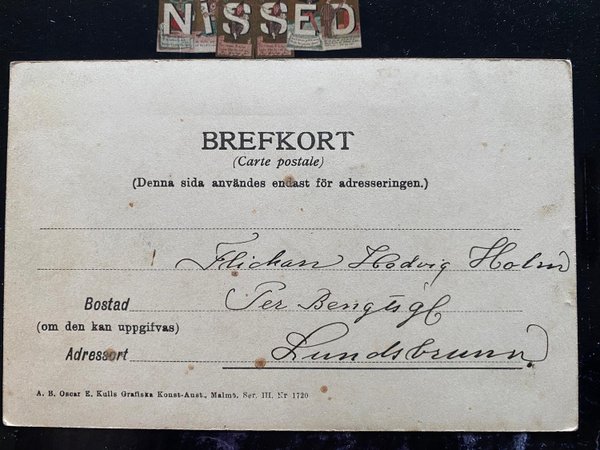 NISSED
BREFKORT
(Carte postale)
(Denna sida användes endast för adresseringen.)
Flickan Hedvig Holm
Bostad Per Bengtsgl
(om den kan uppgifvas)
Adressort Lundsbrunn
A. B. Oscar E. Kulls Grafiska Konst-Anst., Malmö. Ser. III. Nr 1720